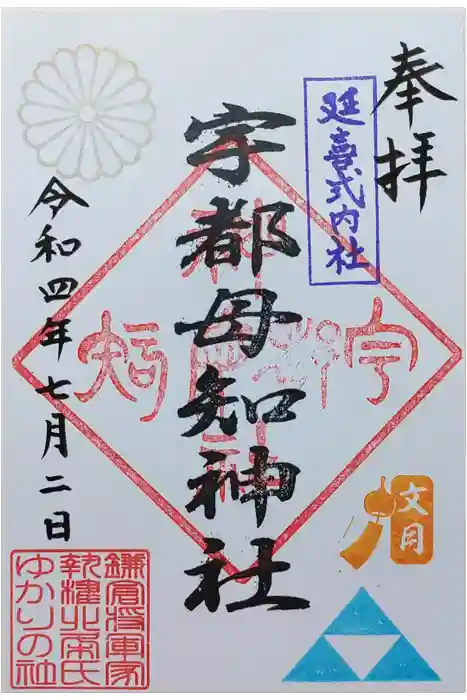 奉拝
延喜式内社
宇都母知神社
令和四年七月二日
文月
鎌倉将軍家
執権北条氏
ゆかりの社